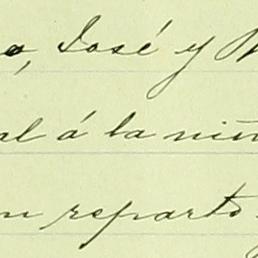 o, José y
al á la niñ
n reparto